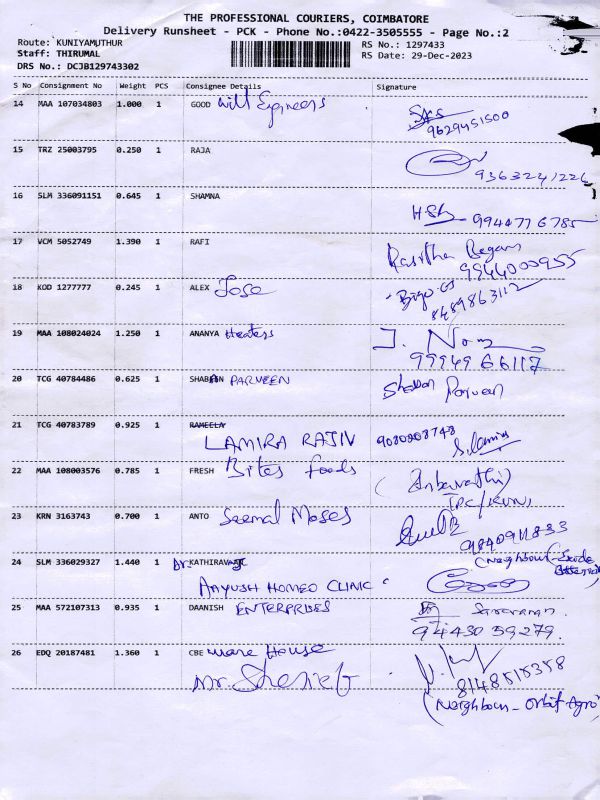 THE PROFESSIONAL COURIERS, COIMBATORE
Delivery Runsheet - PCK - Phone No.:0422-3505555 - Page No.:2
Route: KUNIYAMUTHUR
Staff: THIRUMAL
DRS No.: DCJB129743302
RS No.: 1297433
RS Date: 29-Dec-2023
S No Consignment No Weight PCS Consignee Details Signature
14 MAA 107034803 1.000 1 GOOD Will Engineers
9629451500
15 TRZ 25003795 0.250 1 RAJA
9363241226
16 SLM 336091151 0.645 1 SHAMNA
9944776785
17 VCM 5052749 1.390 1 RAFI Rasitha Begam
9944000955
18 KOD 1277777 0.245 1 ALEX Jose
8489863112
19 MAA 108024024 1.250 1 ANANYA Heaters
99949 66117
20 TCG 40784486 0.625 1 SHABAN PARVEEN Shaban Parveen
21 TCG 40783789 0.925 1 RAMEELA
LAMIRA RAJIV 9080808748
22 MAA 108003576 0.785 1 FRESH Bites foods
(Anbarathi)
23 KRN 3163743 0.700 1 ANTO Seemal Moses
9840911833
24 SLM 336029327 1.440 1 Dr. KATHIRAVAN (Neighbour-
AAYUSH HOMEO CLINIC
25 MAA 572107313 0.935 1 DAANISH ENTERPRISES Saravanan.
94430 59279.
26 EDQ 20187481 1.360 1 CBE ware House
Mr. Sherief
8148515358
(Neighbour - Orbit Agro)